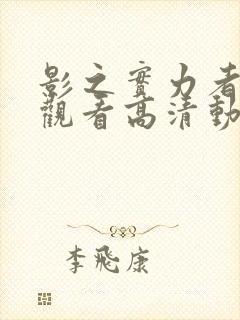 影之實力者
觀看高清動
李飛康